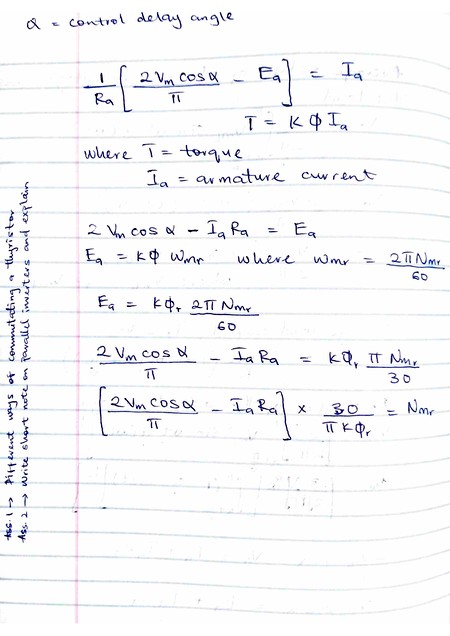 α = control delay angle
1/Ra [ 2Vm cosα/π - Ea ] = Ia
T = KΦIa
where T = torque
Ia = armature current
2 Vm cos α - IaRa = Ea
Ea = KΦ Wmr where Wmr = 2πNmr/60
Ea = KΦr 2πNmr/60
2Vm cos α/π - IaRa = KΦr πNmr/30
[ 2Vm cosα/π - IaRa ] × 30/πKΦr = Nmr
Ass. 1 → Different ways of commutating a thyristor
Ass. 2 → Write short note on parallel inverters and explain